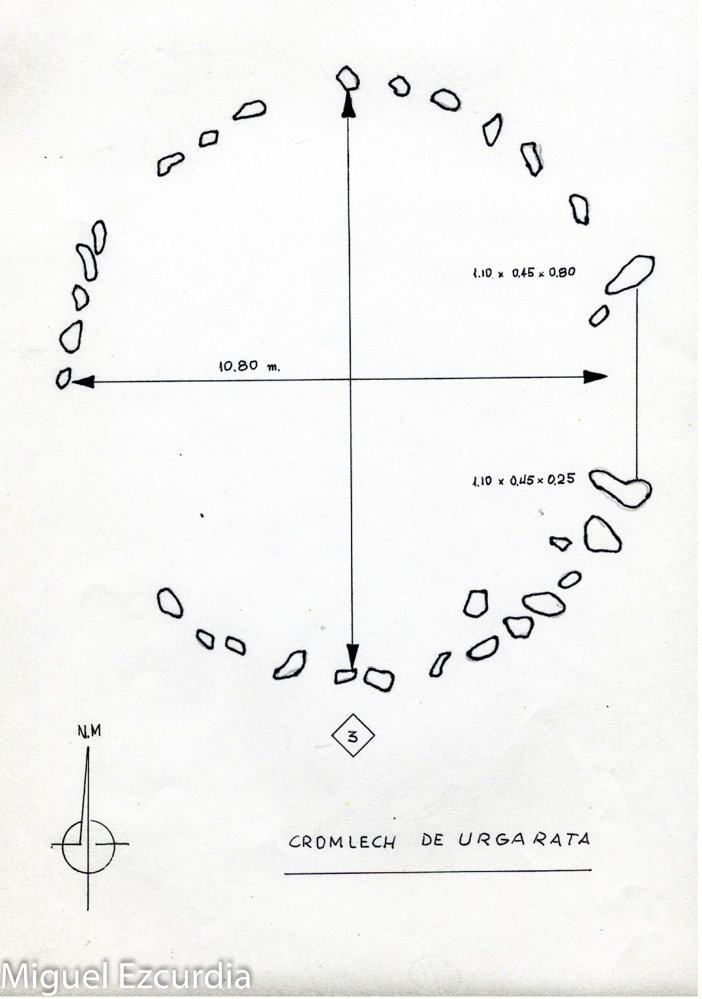 1.10 x 0.45 x 0.80
10.80 m.
1.10 x 0.45 x 0.25
N.M
3
CROMLECH DE URGARATA
Miguel Ezcurdia